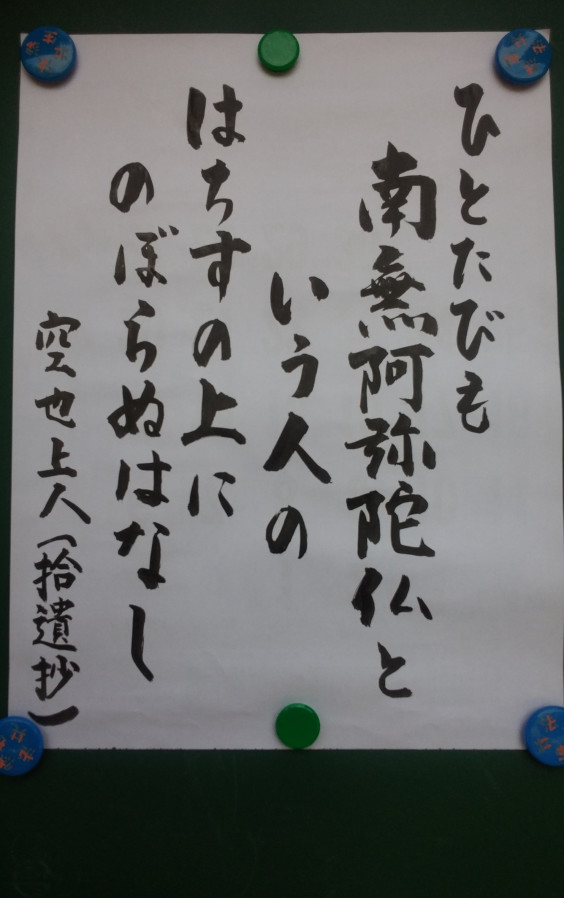 ひとたびも
南無阿弥陀仏と
いう人の
はちすの上に
のぼらぬはなし
空也上人(拾遺抄)